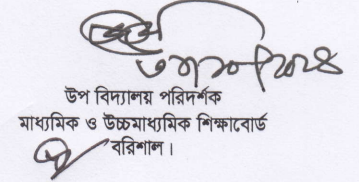 উপ বিদ্যালয় পরিদর্শক
মাধ্যমিক ও উচ্চমাধ্যমিক শিক্ষাবোর্ড
বরিশাল।